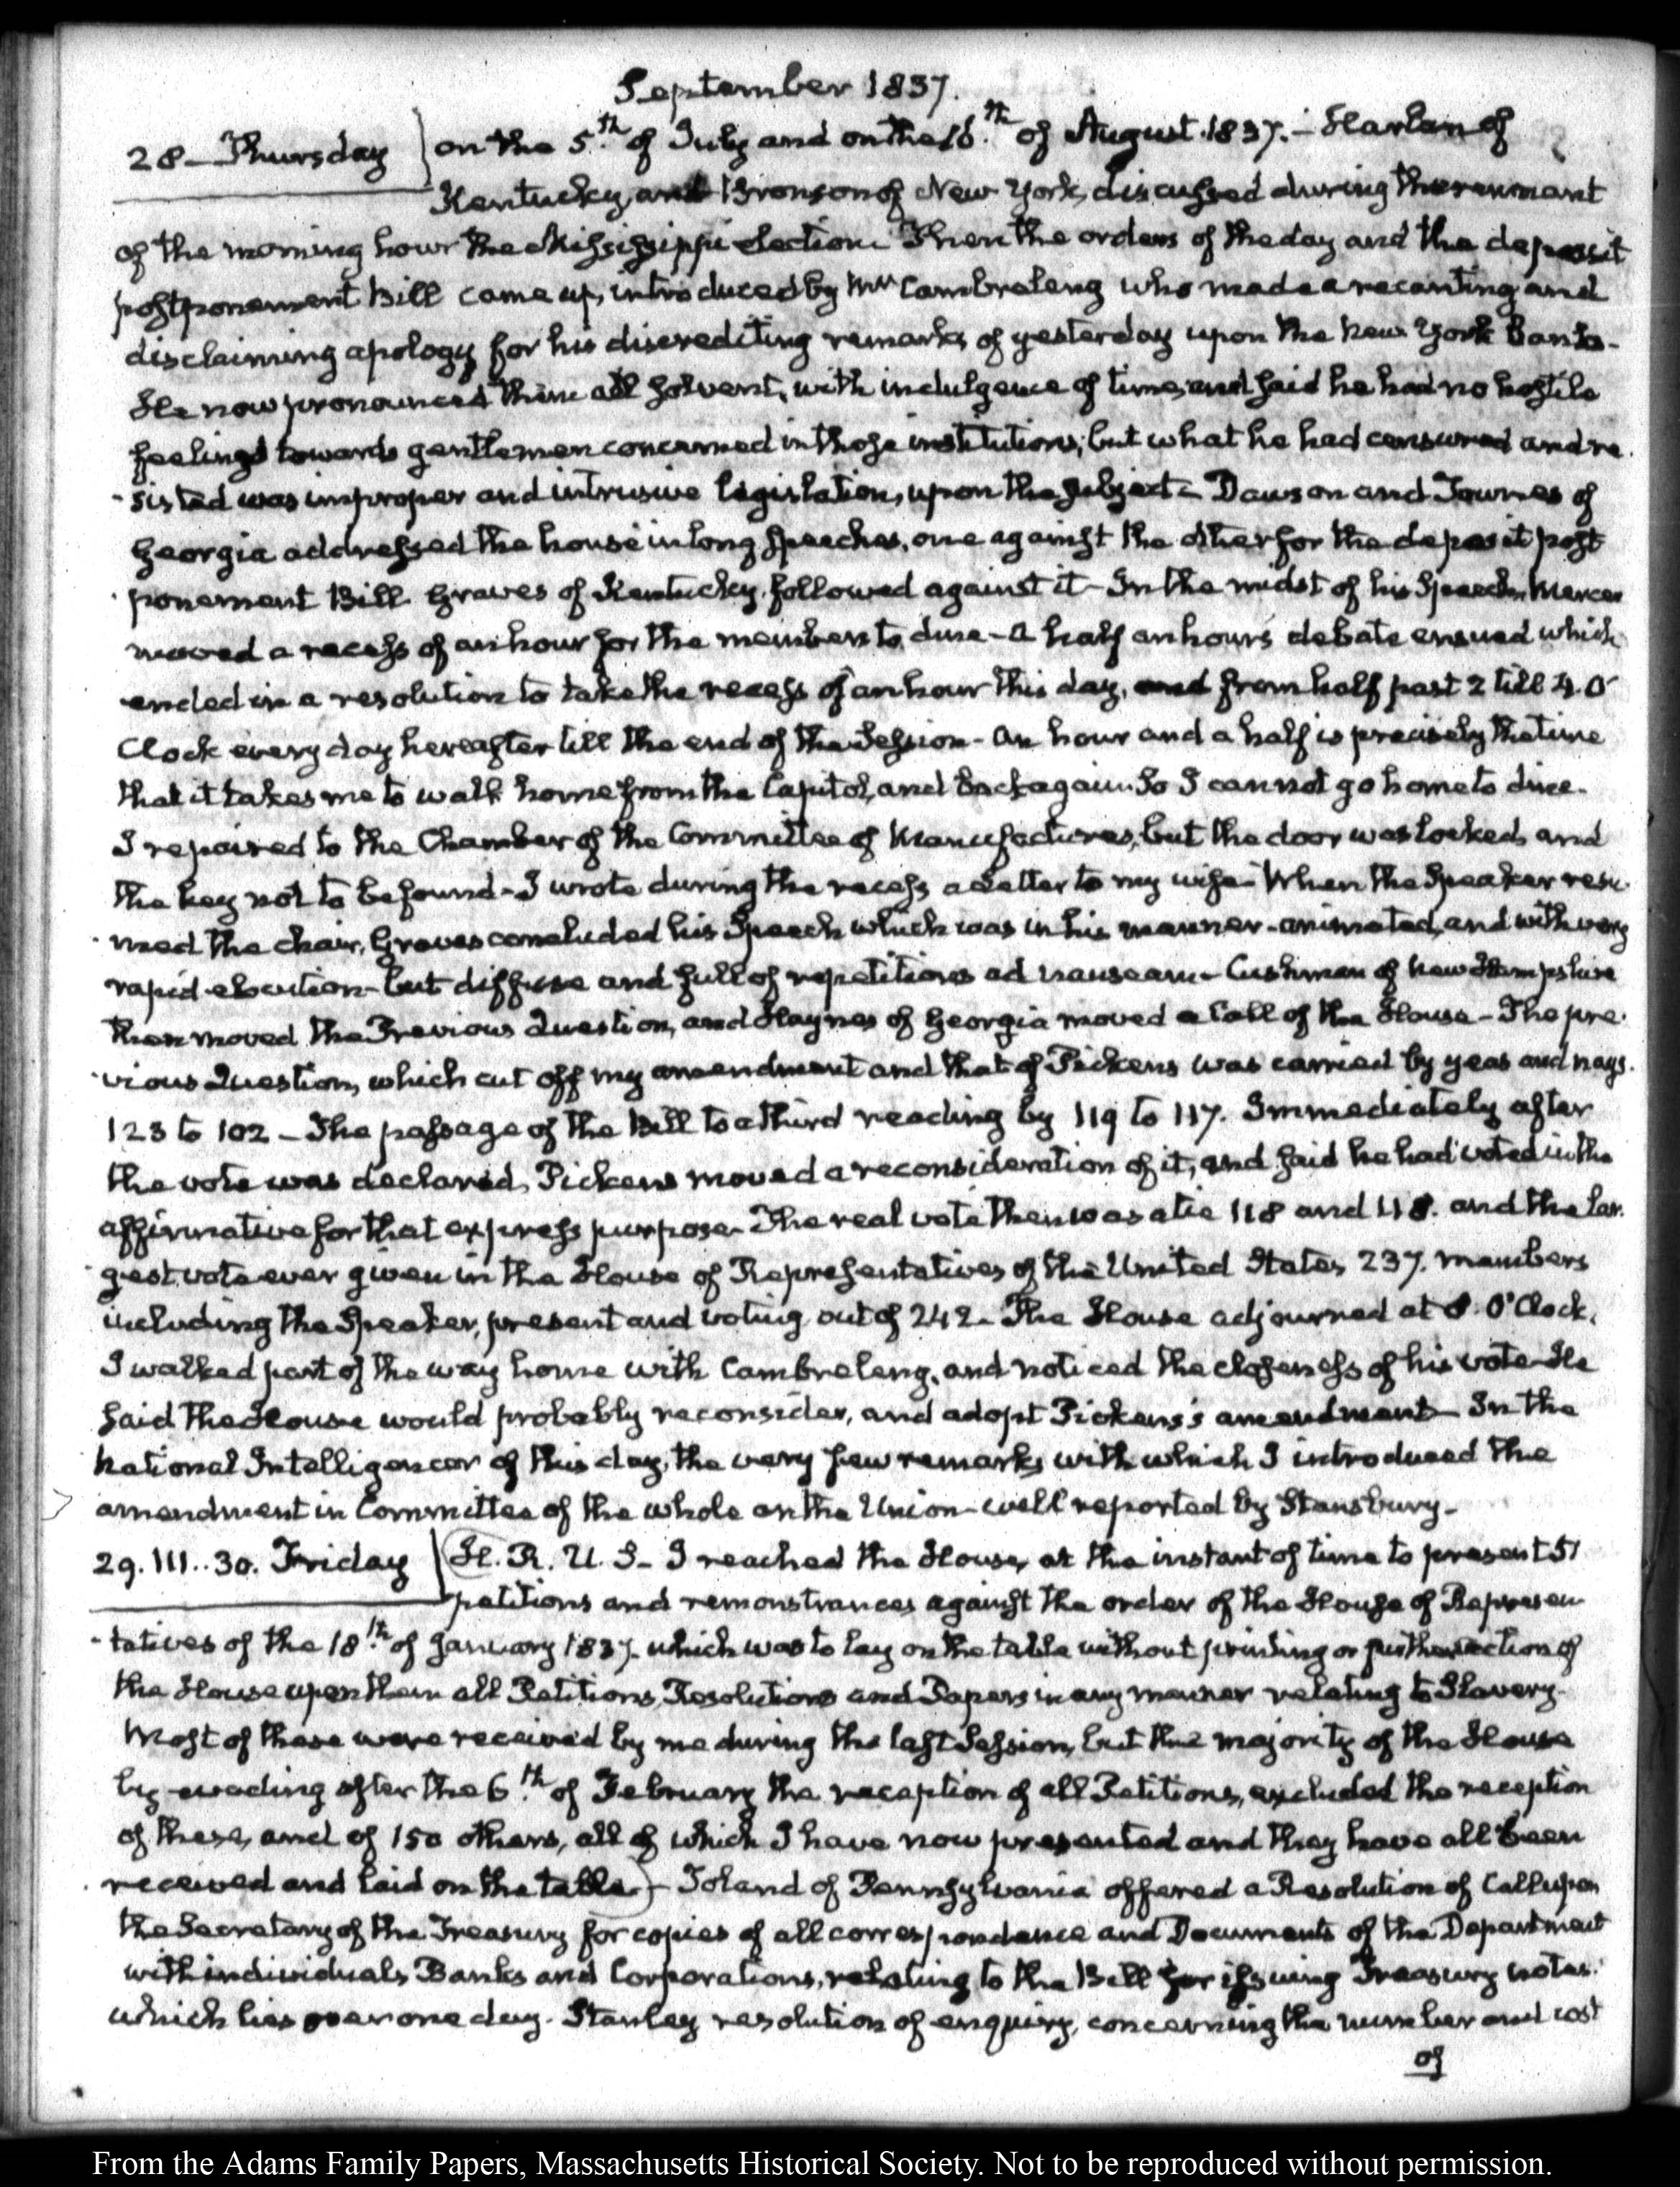 September 1837.
28 – Thursday
on the 5.th of July and on the 16.th of August 1837. – Harlan of
Kentucky, and Bronson of New York, discussed during the remnant
of the morning hour the Mississippi election. Then the orders of the day and the deposit
postponement Bill came up, introduced by Mr Cambreleng who made a recanting and
disclaiming apology for his discrediting remarks of yesterday upon the New York Banks –
He now pronounced them all solvent, with indulgence of time, and said he had no hostile
feelings towards gentlemen concerned in those institutions; but what he had censured and re
sisted was improper and intrusive legislation, upon the subject – Dawson and Townes of
Georgia addressed the house in long speeches, one against the other for the deposit post
ponement Bill. Graves of Kentucky, followed against it – In the midst of his Speech, Mercer
moved a recess of an hour for the members to dine – A half an hours debate ensued which
ended in a resolution to take the recess of an hour this day, and from half past 2 till 4. O'
Clock every day hereafter till the end of the Session – An hour and a half is precisely the time
that it takes me to walk home from the Capitol, and back again. So I cannot go home to dine.
I repaired to the Chamber of the Committee of Manufactures, but the door was locked, and
the key not to be found – I wrote during the recess a Letter to my wife – When the Speaker resu
med the chair, Graves concluded his Speech which was in his manner – animated, and with very
rapid elocution – but diffuse and full of repetitions ad nauseam – Cushman of New Hampshire
then moved the Previous Question, and Haynes of Georgia moved a Call of the House – The pre
vious Question, which cut off my amendment and that of Pickens was carried by yeas and nays.
123 to 102 – The passage of the Bill to a third reading by 119 to 117. Immediately after
the vote was declared, Pickens moved a reconsideration of it, and said he had voted in the
affirmative for that express purpose – The real vote then was a tie 118 and 118. and the lar
gest vote ever given in the House of Representatives of the United States, 237. members
including the Speaker, present and voting out of 242 – The House adjourned at 8. O'Clock.
I walked part of the way home with Cambreleng, and noticed the closeness of his vote – He
said the House would probably reconsider, and adopt Pickens's amendment – In the
National Intelligencer of this day, the very few remarks with which I introduced the
amendment in Committee of the whole on the Union – well reported by Stansbury –
29. III..30. Friday
H. R. U. S – I reached the House, at the instant of time to present 51
petitions and remonstrances against the order of the House of Represen
tatives of the 18.th of January 1837. which was to lay on the table without printing or further action of
the House upon them all Petitions, Resolutions and Papers in any manner relating to Slavery –
Most of these were received by me during the last Session, but the majority of the House
by evading after the 6.th of February the reception of all Petitions, excluded the reception
of these, and of 150 others, all of which I have now presented and they have all been
received and laid on the table) – Toland of Pennsylvania offered a Resolution of Call upon
the Secretary of the Treasury for copies of all correspondence and Documents of the Department
with individuals, Banks and Corporations, relating to the Bill for issuing Treasury notes.
which lies over one day. Stanley resolution of enquiry, concerning the number and cost
of
From the Adams Family Papers, Massachusetts Historical Society. Not to be reproduced without permission.